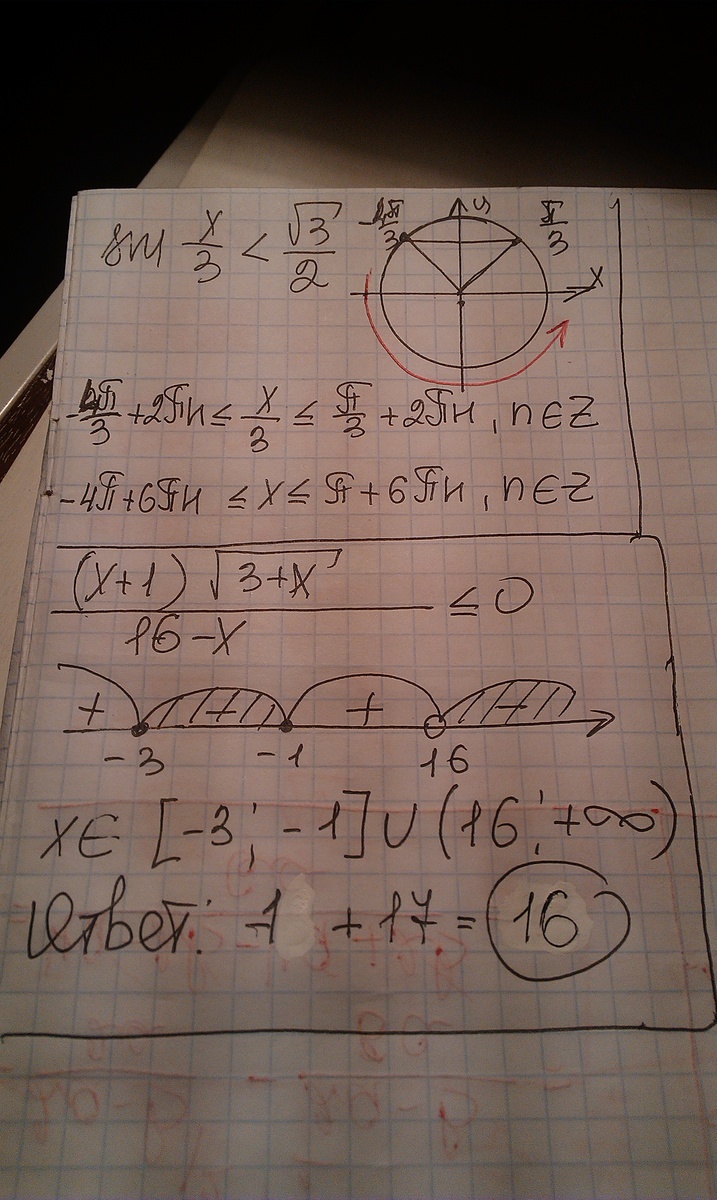 sin x/3 < √3/2
-4π/3 y π/3 x
-4π/3 + 2πn ≤ x/3 ≤ π/3 + 2πn, n ∈ Z
-4π + 6πn ≤ x ≤ π + 6πn, n ∈ Z
(x+1) √3+x / 16-x ≤ 0
+ + + +
-3 -1 16
x ∈ [-3; -1] ∪ (16; +∞)
Ответ: -1 + 17 = 16